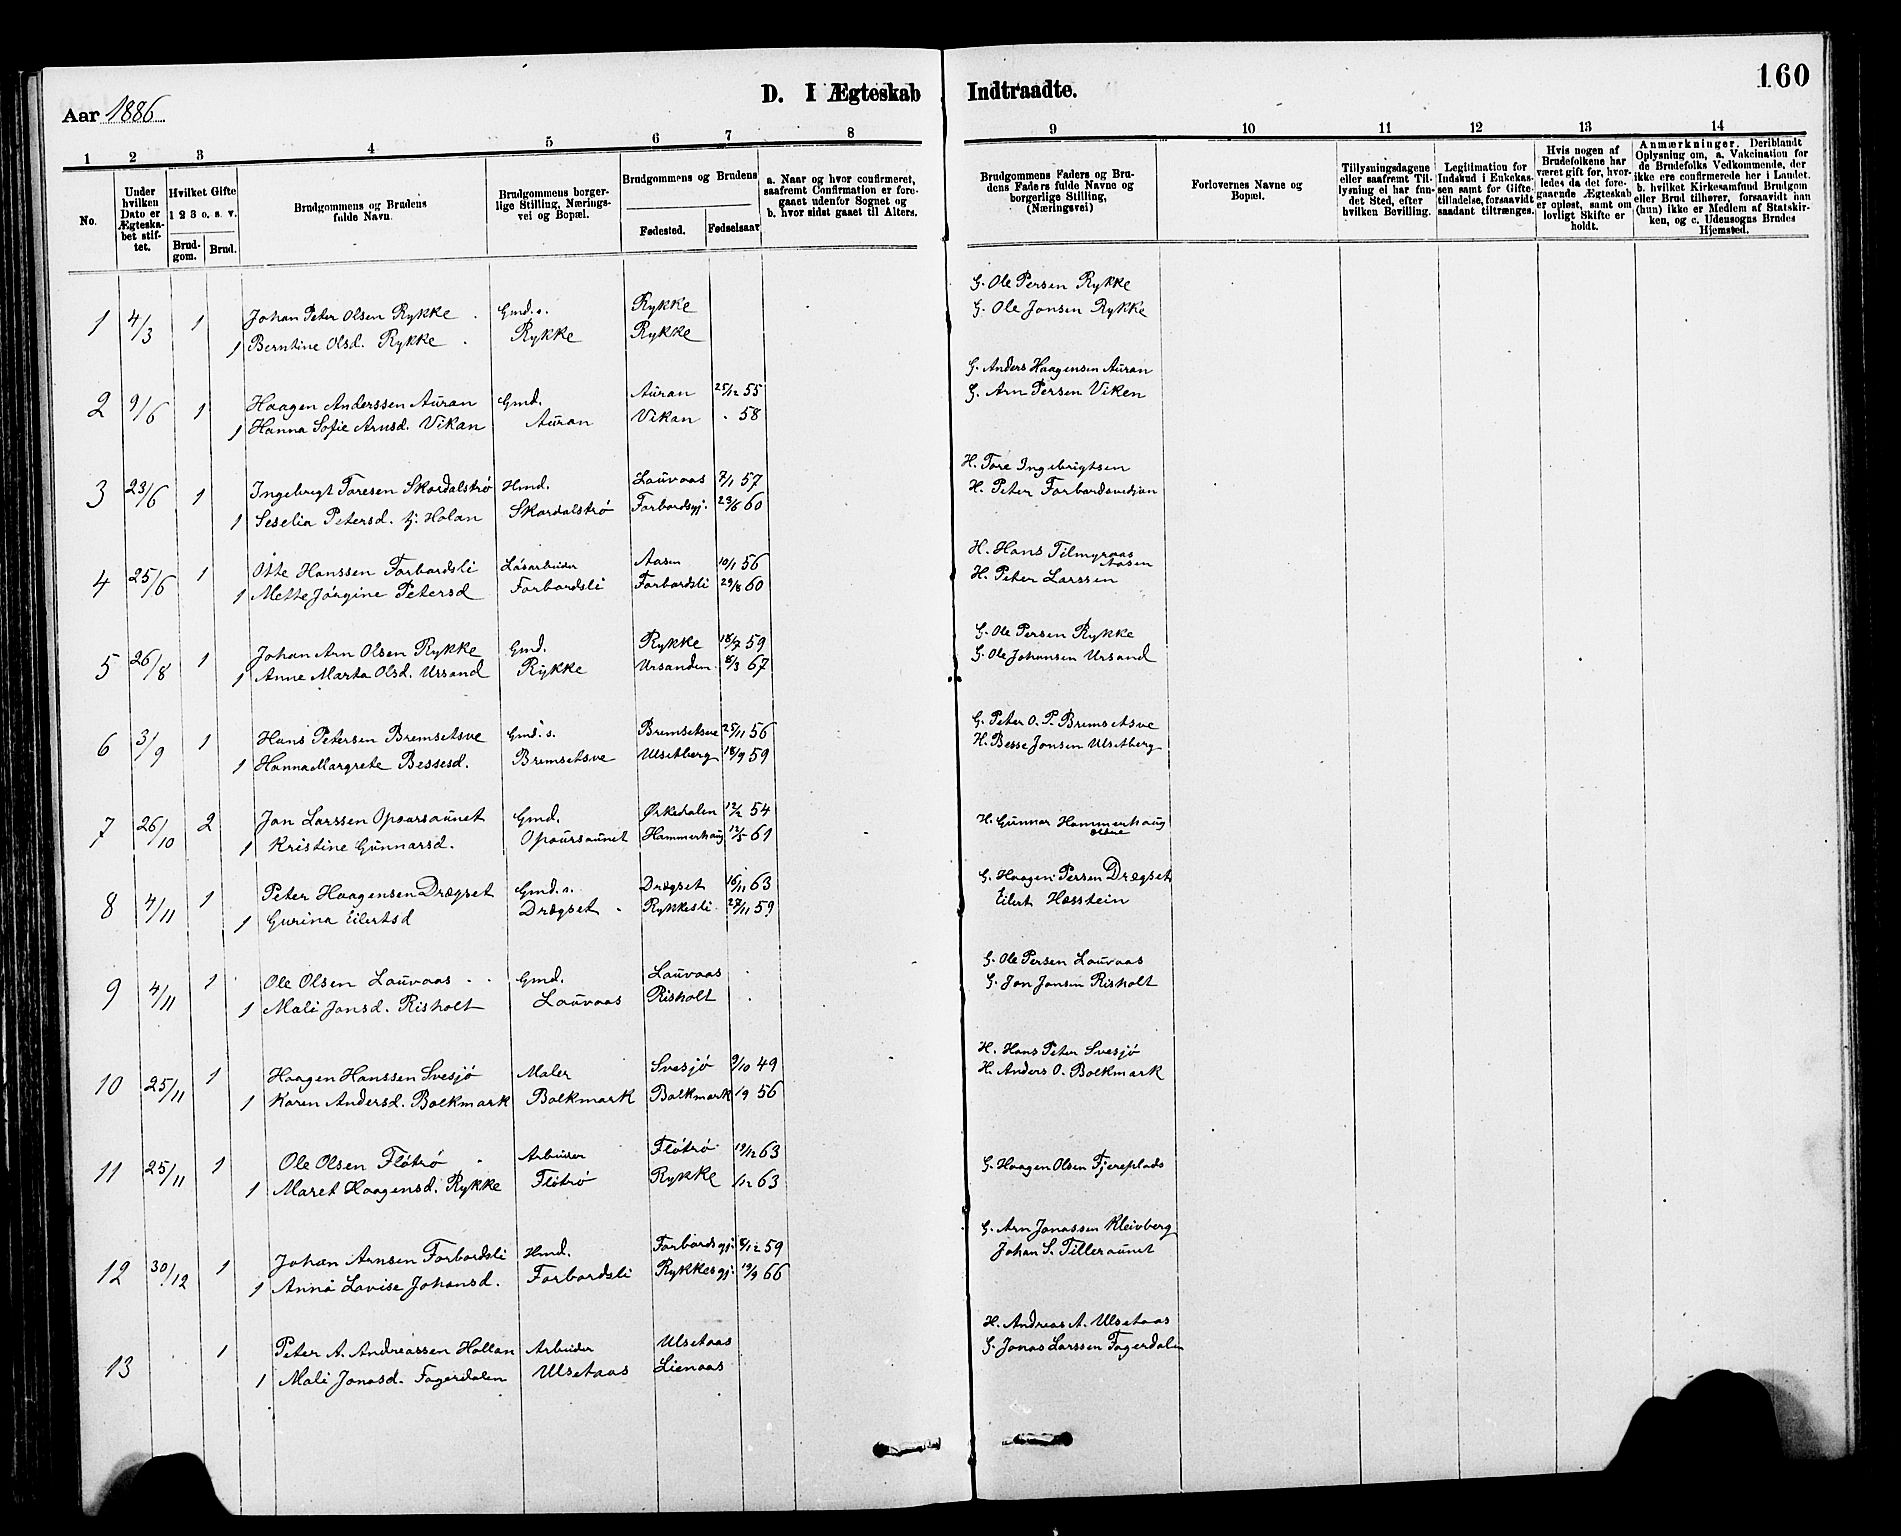 160
D. I Ægteskab Indtraadte.
Aar 1886
1 2 3 4 5 6 7 8 9 10 11 12 13 14
No.
Under hvilken Dato er Ægteskabet stiftet.
Hvilket Gifte 1 2 3 o. s. v.
Brudgom. Brud.
Brudgommens og Brudens fulde Navn.
Brudgommens borgerlige Stilling, Næringsvei og Bopæl.
Brudgommens og Brudens
Fødested. Fødselsaar
a. Naar og hvor confirmeret, saafremt Confirmation er foregaaet udenfor Sognet og b. hvor sidst gaaet til Alters.
Brudgommens Faders og Brudens Faders fulde Navne og borgerlige Stilling, (Næringsvei)
Forlovernes Navne og Bopæl.
Tillysningsdagene eller saafremt Tillysning ei har fundet Sted, efter hvilken Bevilling.
Legitimation for Indskud i Enkekassen samt for Giftetilladelse, forsaavidt saadant tiltrænges.
Hvis nogen af Brudefolkene har været gift før, hvorledes da det foregaaende Ægteskab er opløst, samt om lovligt Skifte er holdt.
Anmærkninger. Deriblandt Oplysning om, a. Vakcination for de Brudefolks Vedkommende, der ikke ere confirmerede her i Landet. b. hvilket Kirkesamfund Brudgom eller Brud tilhører, forsaavidt han (hun) ikke er Medlem af Statskirken, og c. Udensogns Brudes Hjemsted.
1 4/3 1 Johan Peter Olsen Rykke Gmd.s. Rykke G. Ole Persen Rykke
1 Berntine Olsd. Rykke Rykke Rykke G. Ole Jonsen Rykke
2 9/6 1 Haagen Anderssen Auran Gmd. Auran 25/12 55 G. Anders Haagensen Auran
1 Hanna Sofie Arnsd. Vikan Auran Vikan 58 G. Arn Persen Viken
3 23/6 1 Ingebrigt Toresen Skordalstrø Hmd. Lauvaas 7/1 57 H. Tore Ingebrigtsen
1 Seselia Petersd. tj. Holan Skordalstrø Forbordsgj. 23/6 60 H. Peter Forbordsvedjan
4 25/6 1 Otte Hanssen Forbordsli Løsarbeider Aasen 10/1 56 H. Hans Tilmyraas Aasen
1 Mette Jørgine Petersd Forbordsli Forbordsli 29/8 60 H. Peter Larssen
5 26/8 1 Johan Arn Olsen Rykke Gmd. Rykke 18/7 59 G. Ole Persen Rykke
1 Anne Marta Olsd. Ursand Rykke Ursanden 8/3 67 G. Ole Johansen Ursand
6 3/9 1 Hans Petersen Bremsetsve Gmd.s. Bremsetsve 25/11 56 G. Peter O. P. Bremsetsve
1 Hanna Margrete Bessesd. Bremsetsve Ulsetberg 18/9 59 H. Besse Jonsen Ulsetberg
7 26/10 2 Jon Larssen Opaursaunet Gmd. Ørkedalen 12/2 54
1 Kristine Gunnarsd. Opaursaunet Hammerhaug 12/5 61 H. Gunnar Hammerhaug
8 4/11 1 Peter Haagensen Drægset Gmd.s. Drægset 16/11 63 G. Haagen Persen Drægset
1 Gurina Eilertsd Drægset Rykkesli 27/11 59 Eilert Hasstein
9 4/11 1 Ole Olsen Lauvaas Gmd. Lauvaas G. Ole Persen Lauvaas
1 Mali Jonsd. Risholt Lauvaas Risholt G. Jon Jonsen Risholt
10 25/11 1 Haagen Hanssen Svesjø Maler Svesjø 9/10 49 H. Hans Peter Svesjø
1 Karen Andersd. Bolkmark Bolkmark Bolkmark 19 56 H. Anders O. Bolkmark
11 25/11 1 Ole Olsen Fløtrø Arbeider Fløtrø 19/12 63
1 Maret Haagensd. Rykke Fløtrø Rykke 1/12 63 G. Haagen Olsen Fjereplads
12 30/12 1 Johan Arnsen Forbordsli Hmd. Forbordsgj. 8/12 59 G. Arn Jonassen Kleivberg
1 Anna Lovise Johansd. Forbordsli Rykkesgj. 19/9 66 Johan S. Tilleraunet
13 1 Peter A. Andreassen Hollan Arbeider Ulsetaas H. Andreas A. Ulsetaas
1 Mali Jonasd. Fagerdalen Ulsetaas Lienaas G. Jonas Larssen Fagerdalen